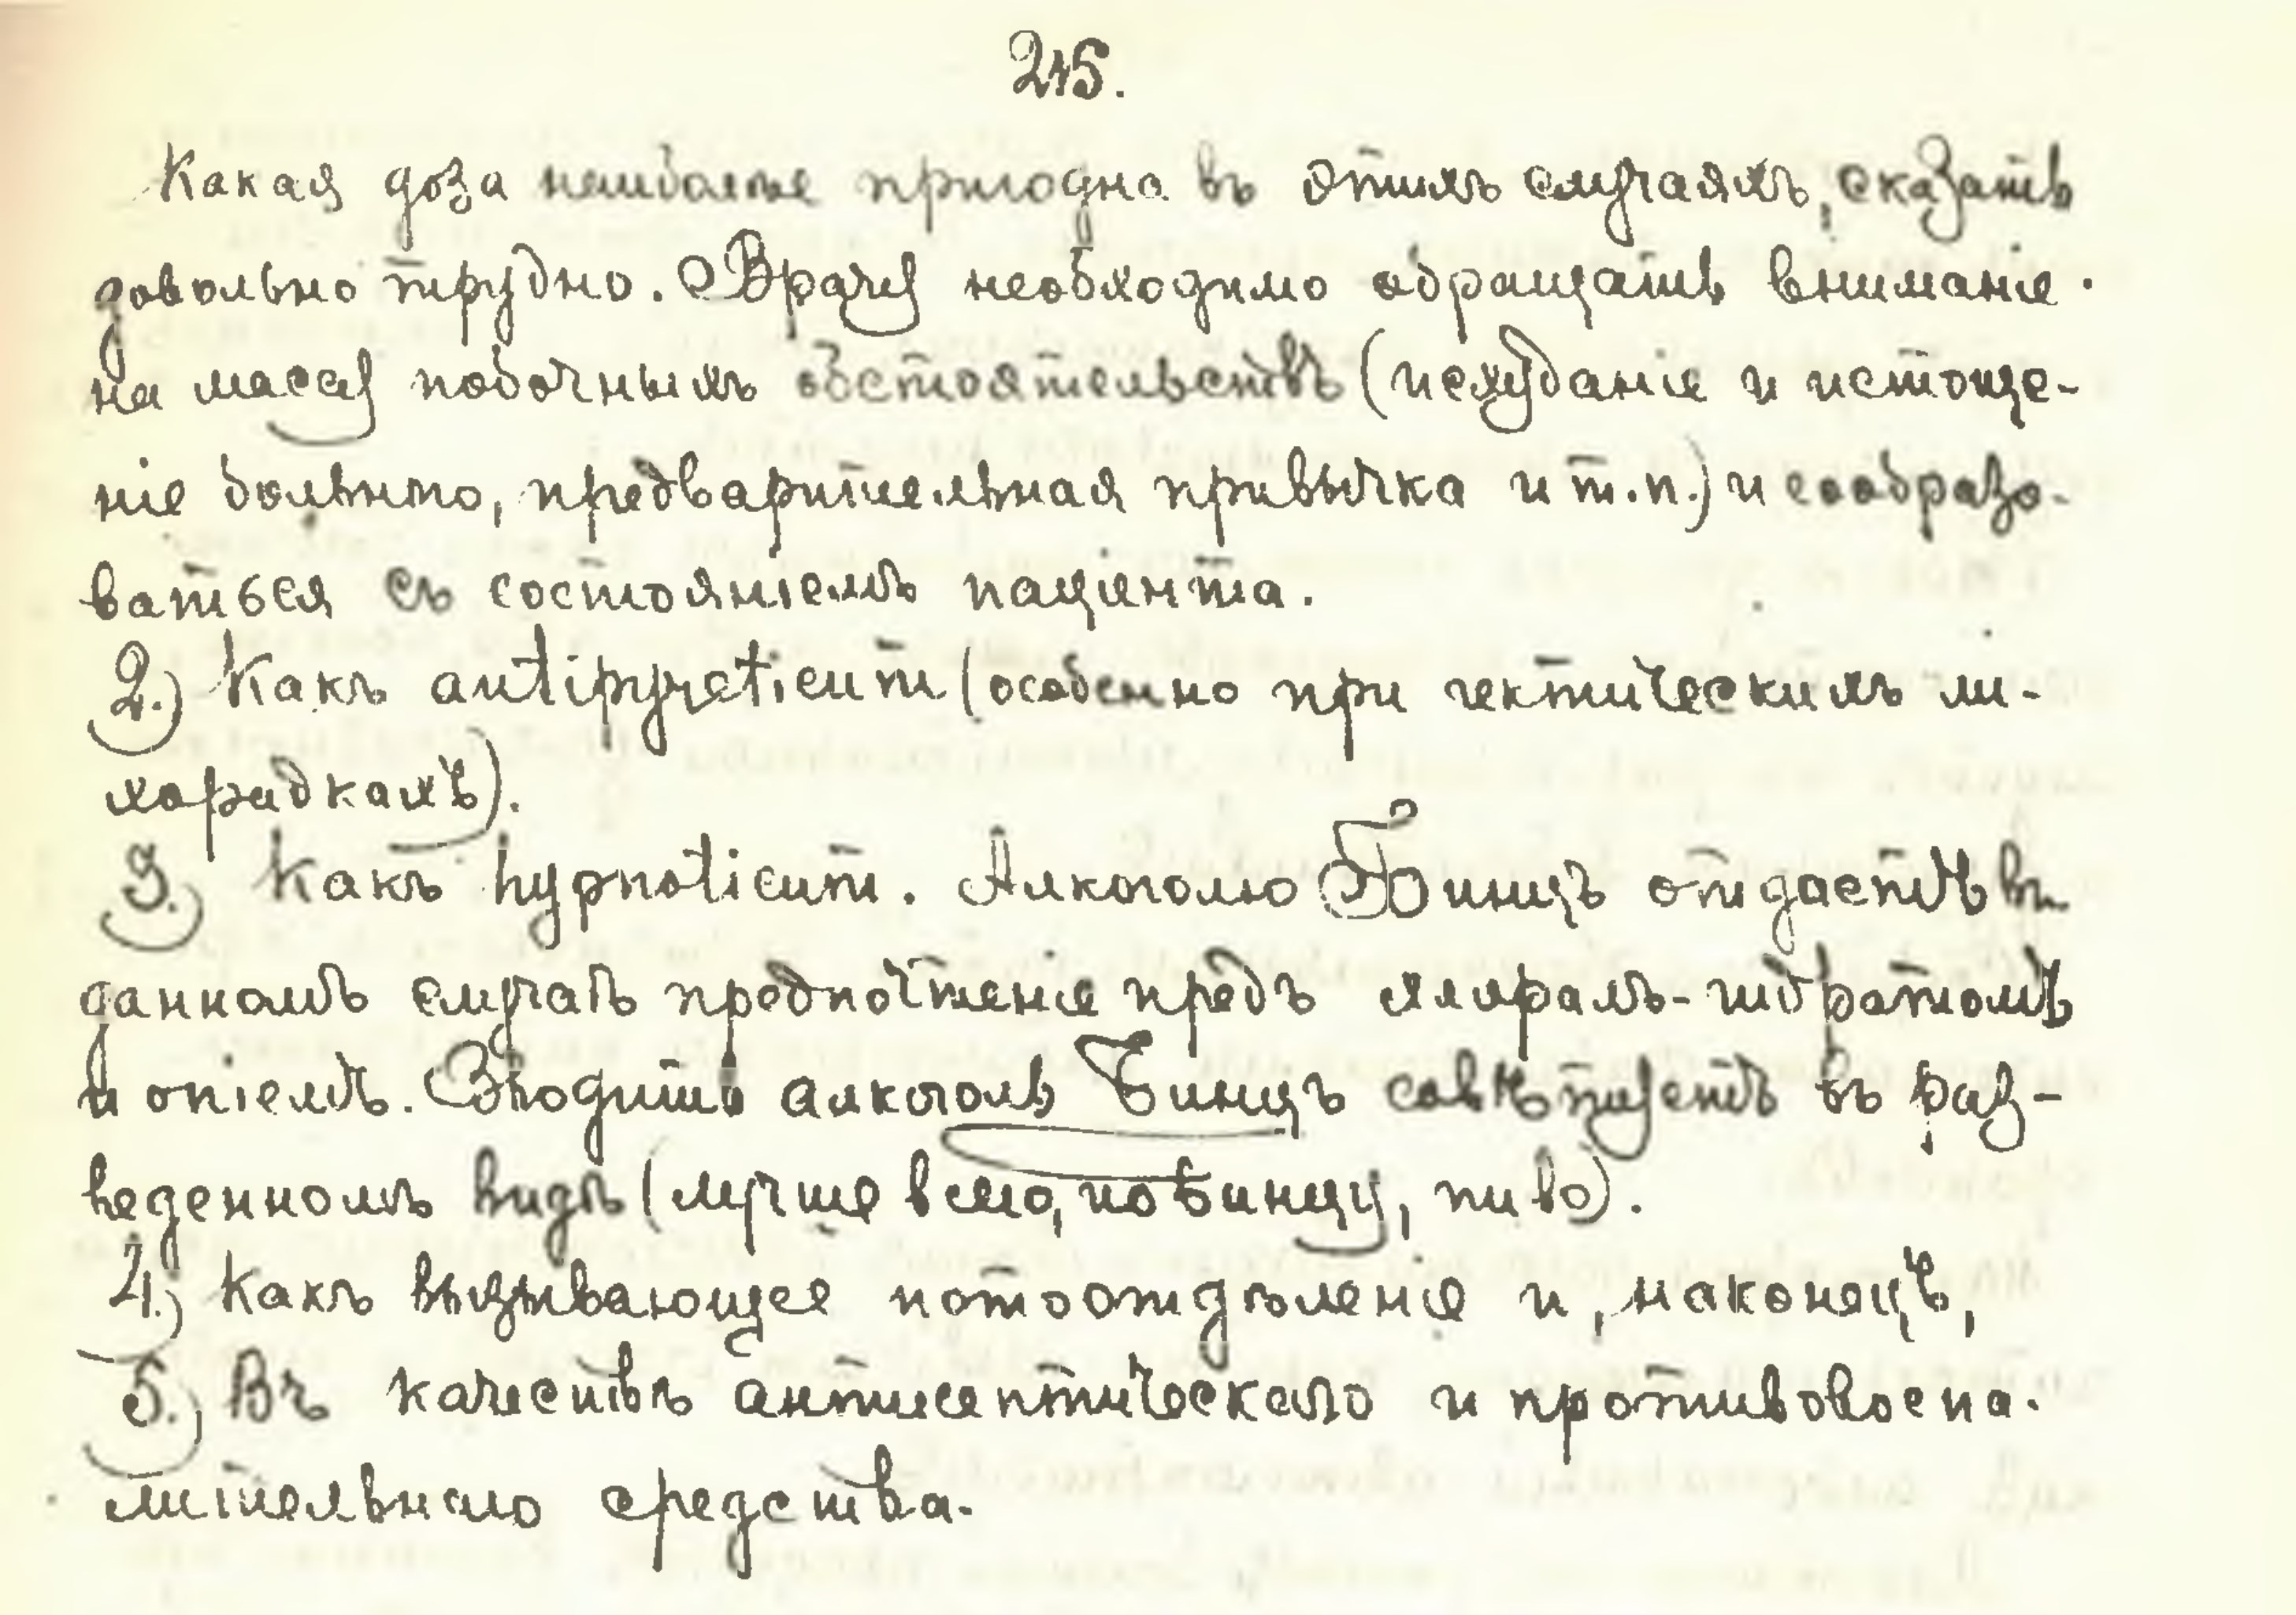 215.
Какая доза наиболѣе пригодна въ этихъ случаяхъ, сказать
довольно трудно. Врачу необходимо обращать вниманіе
на массу побочныхъ обстоятельствъ (исхуданіе и истоще-
ніе больного, предварительная привычка и т.п.) и сообразо-
ваться съ состояніемъ паціента.
2.) Какъ antipyreticum (особенно при гектическихъ ли-
хорадкахъ).
3.) Какъ hypnoticum. Алкоголю Бинцъ отдаетъ въ
данномъ случаѣ предпочтеніе предъ хлоралъ-гидратомъ
и опіемъ. Вводить алкоголь Бинцъ совѣтуетъ въ раз-
веденномъ видѣ (лучше всего, по Бинцу, пиво).
4.) Какъ вызывающее потоотдѣленіе и, наконецъ,
5.) Въ качествѣ антисептическаго и противовоспа-
лительнаго средства.